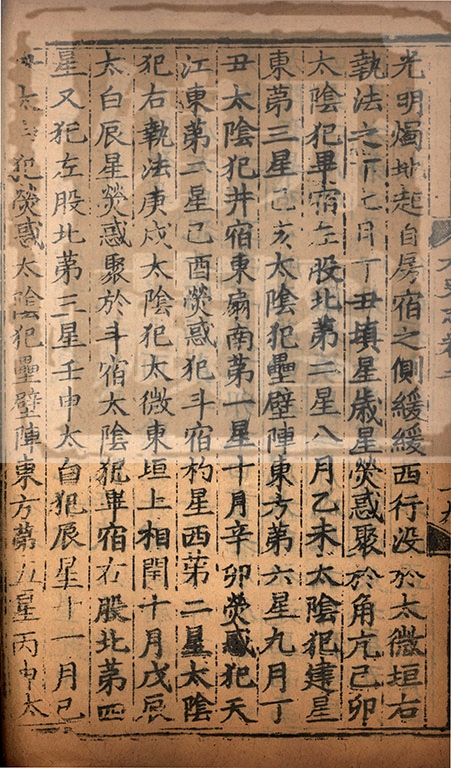 光明燭地起自房宿之側緩緩西行没於太微垣右
執法之下七月丁丑填星歲星熒惑聚於角亢己卯
太陰犯畢宿左股北第二星八月乙未太陰犯建星
東第三星己亥太陰犯壘壁陣東方第六星九月丁
丑太陰犯井宿東扇南第一星十月辛卯熒惑犯天
江東第二星己酉熒惑犯斗宿杓星西第二星太陰
犯右執法庚戌太陰犯太微東垣上相閏十月戊辰
太白辰星熒惑聚於斗宿太陰犯畢宿右股北第四
星又犯左股北第三星壬申太白犯辰星十一月己
太白犯熒惑太陰犯壘壁陣東方第五星丙申太